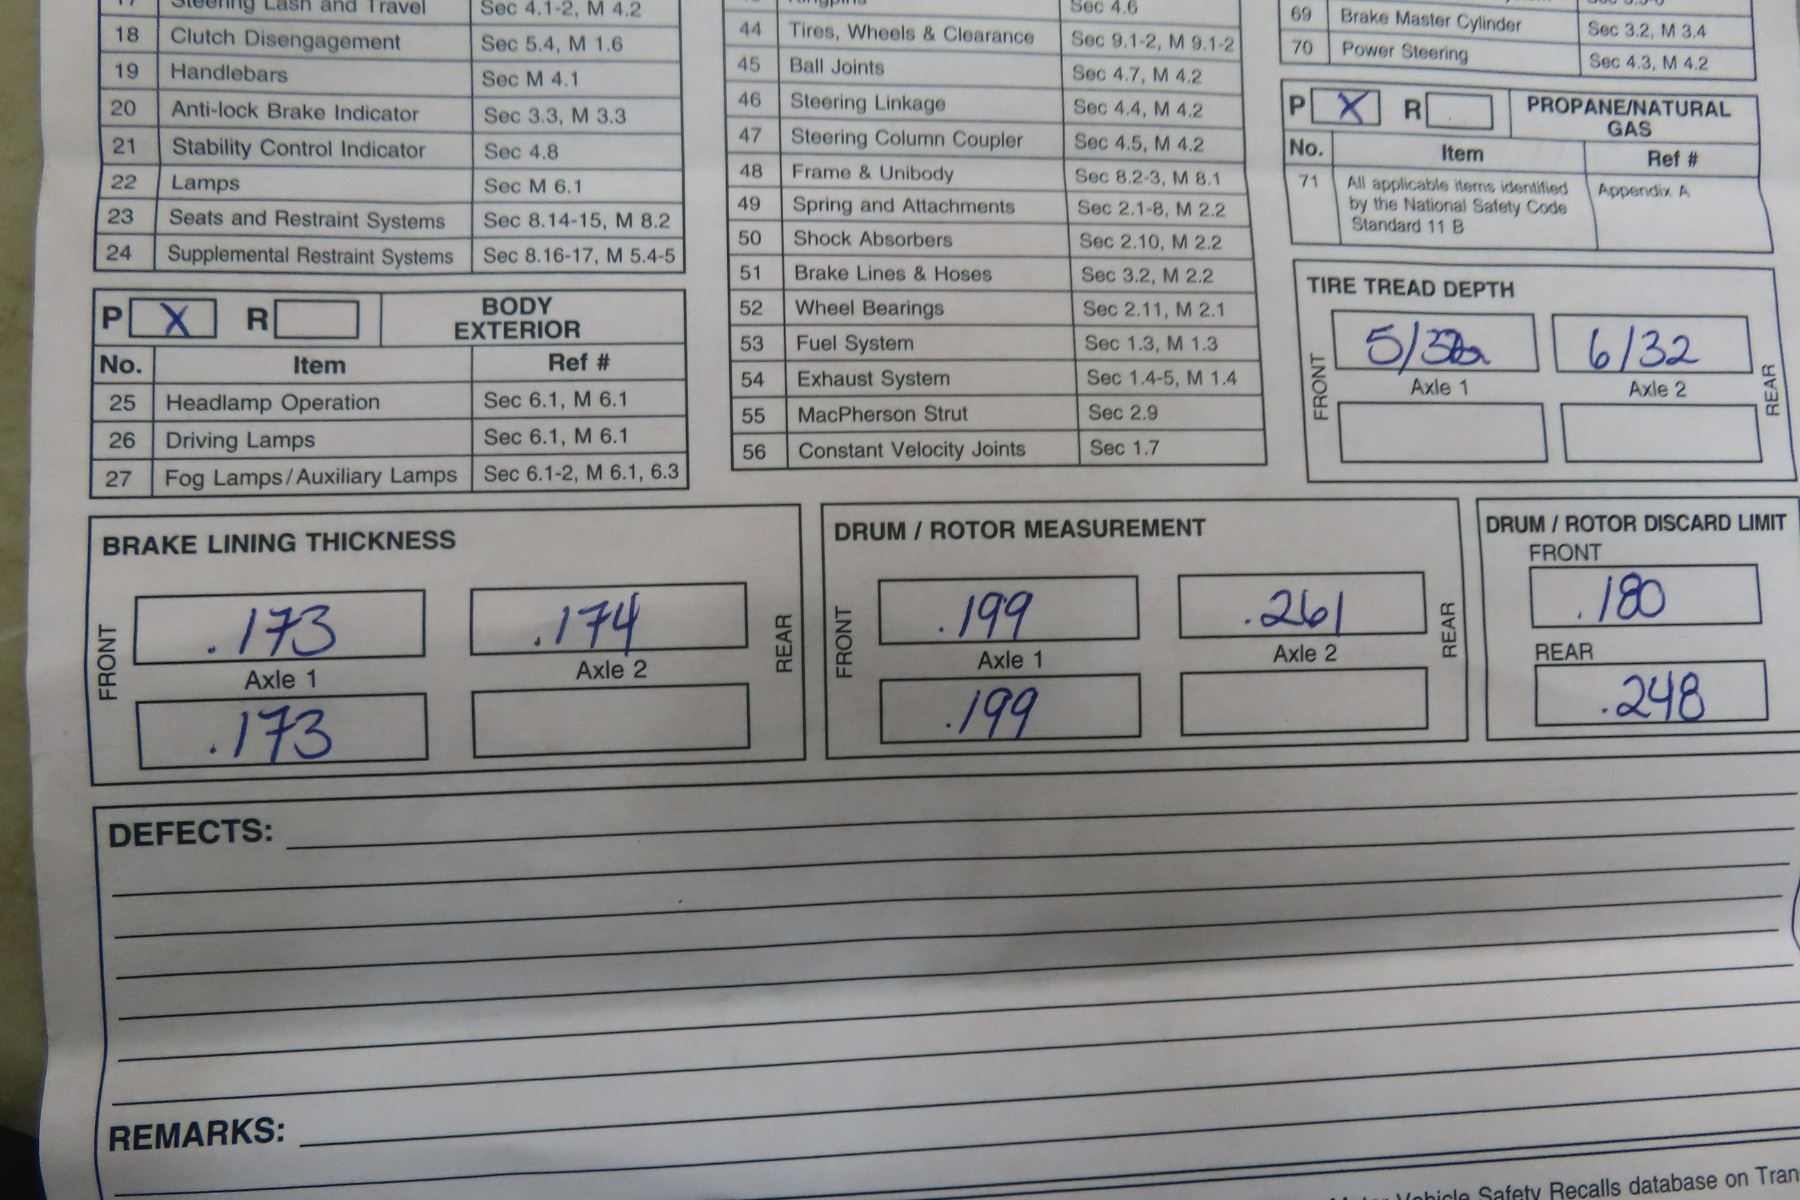 17 Steering Lash and Travel Sec 4.1-2, M 4.2
18 Clutch Disengagement Sec 5.4, M 1.6
19 Handlebars Sec M 4.1
20 Anti-lock Brake Indicator Sec 3.3, M 3.3
21 Stability Control Indicator Sec 4.8
22 Lamps Sec M 6.1
23 Seats and Restraint Systems Sec 8.14-15, M 8.2
24 Supplemental Restraint Systems Sec 8.16-17, M 5.4-5
P X R BODY EXTERIOR
No. Item Ref #
25 Headlamp Operation Sec 6.1, M 6.1
26 Driving Lamps Sec 6.1, M 6.1
27 Fog Lamps/Auxiliary Lamps Sec 6.1-2, M 6.1, 6.3
Kingpins Sec 4.6
44 Tires, Wheels & Clearance Sec 9.1-2, M 9.1-2
45 Ball Joints Sec 4.7, M 4.2
46 Steering Linkage Sec 4.4, M 4.2
47 Steering Column Coupler Sec 4.5, M 4.2
48 Frame & Unibody Sec 8.2-3, M 8.1
49 Spring and Attachments Sec 2.1-8, M 2.2
50 Shock Absorbers Sec 2.10, M 2.2
51 Brake Lines & Hoses Sec 3.2, M 2.2
52 Wheel Bearings Sec 2.11, M 2.1
53 Fuel System Sec 1.3, M 1.3
54 Exhaust System Sec 1.4-5, M 1.4
55 MacPherson Strut Sec 2.9
56 Constant Velocity Joints Sec 1.7
69 Brake Master Cylinder Sec 3.2, M 3.4
70 Power Steering Sec 4.3, M 4.2
P X R PROPANE/NATURAL
GAS
No. Item Ref #
71 All applicable items identified Appendix A
by the National Safety Code
Standard 11 B
TIRE TREAD DEPTH
FRONT 5/32 6/32 REAR
Axle 1 Axle 2
BRAKE LINING THICKNESS
FRONT .173 .174 REAR
Axle 1 Axle 2
.173
DRUM / ROTOR MEASUREMENT
FRONT .199 .261 REAR
Axle 1 Axle 2
.199
DRUM / ROTOR DISCARD LIMIT
FRONT
.180
REAR
.248
DEFECTS:
REMARKS:
Vehicle Safety Recalls database on Tran